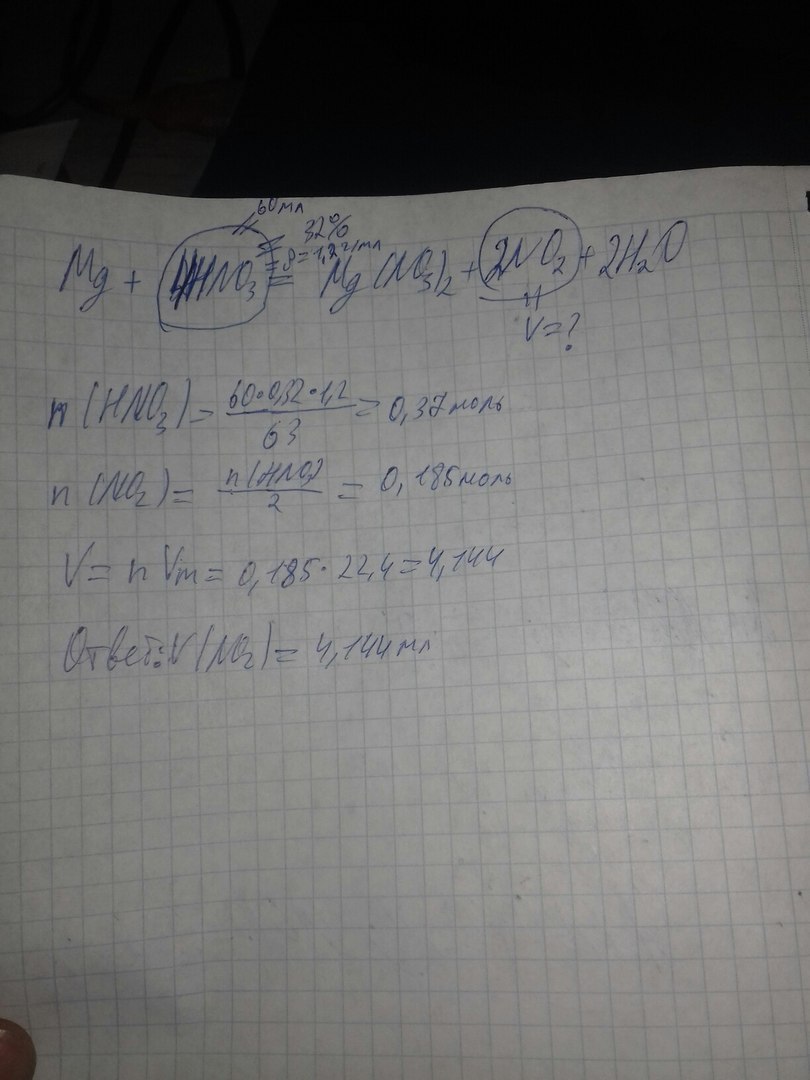 60мл
32%
ρ=1,2г/мл
Mg + 4HNO₃ = Mg(NO₃)₂ + 2NO₂ + 2H₂O
V=?
n(HNO₃)= 60·0,32·1,2/63 = 0,37моль
n(NO₂)= n(HNO₃)/2 = 0,185моль
V= n Vm = 0,185·22,4=4,144
Ответ: V(NO₂)= 4,144мл